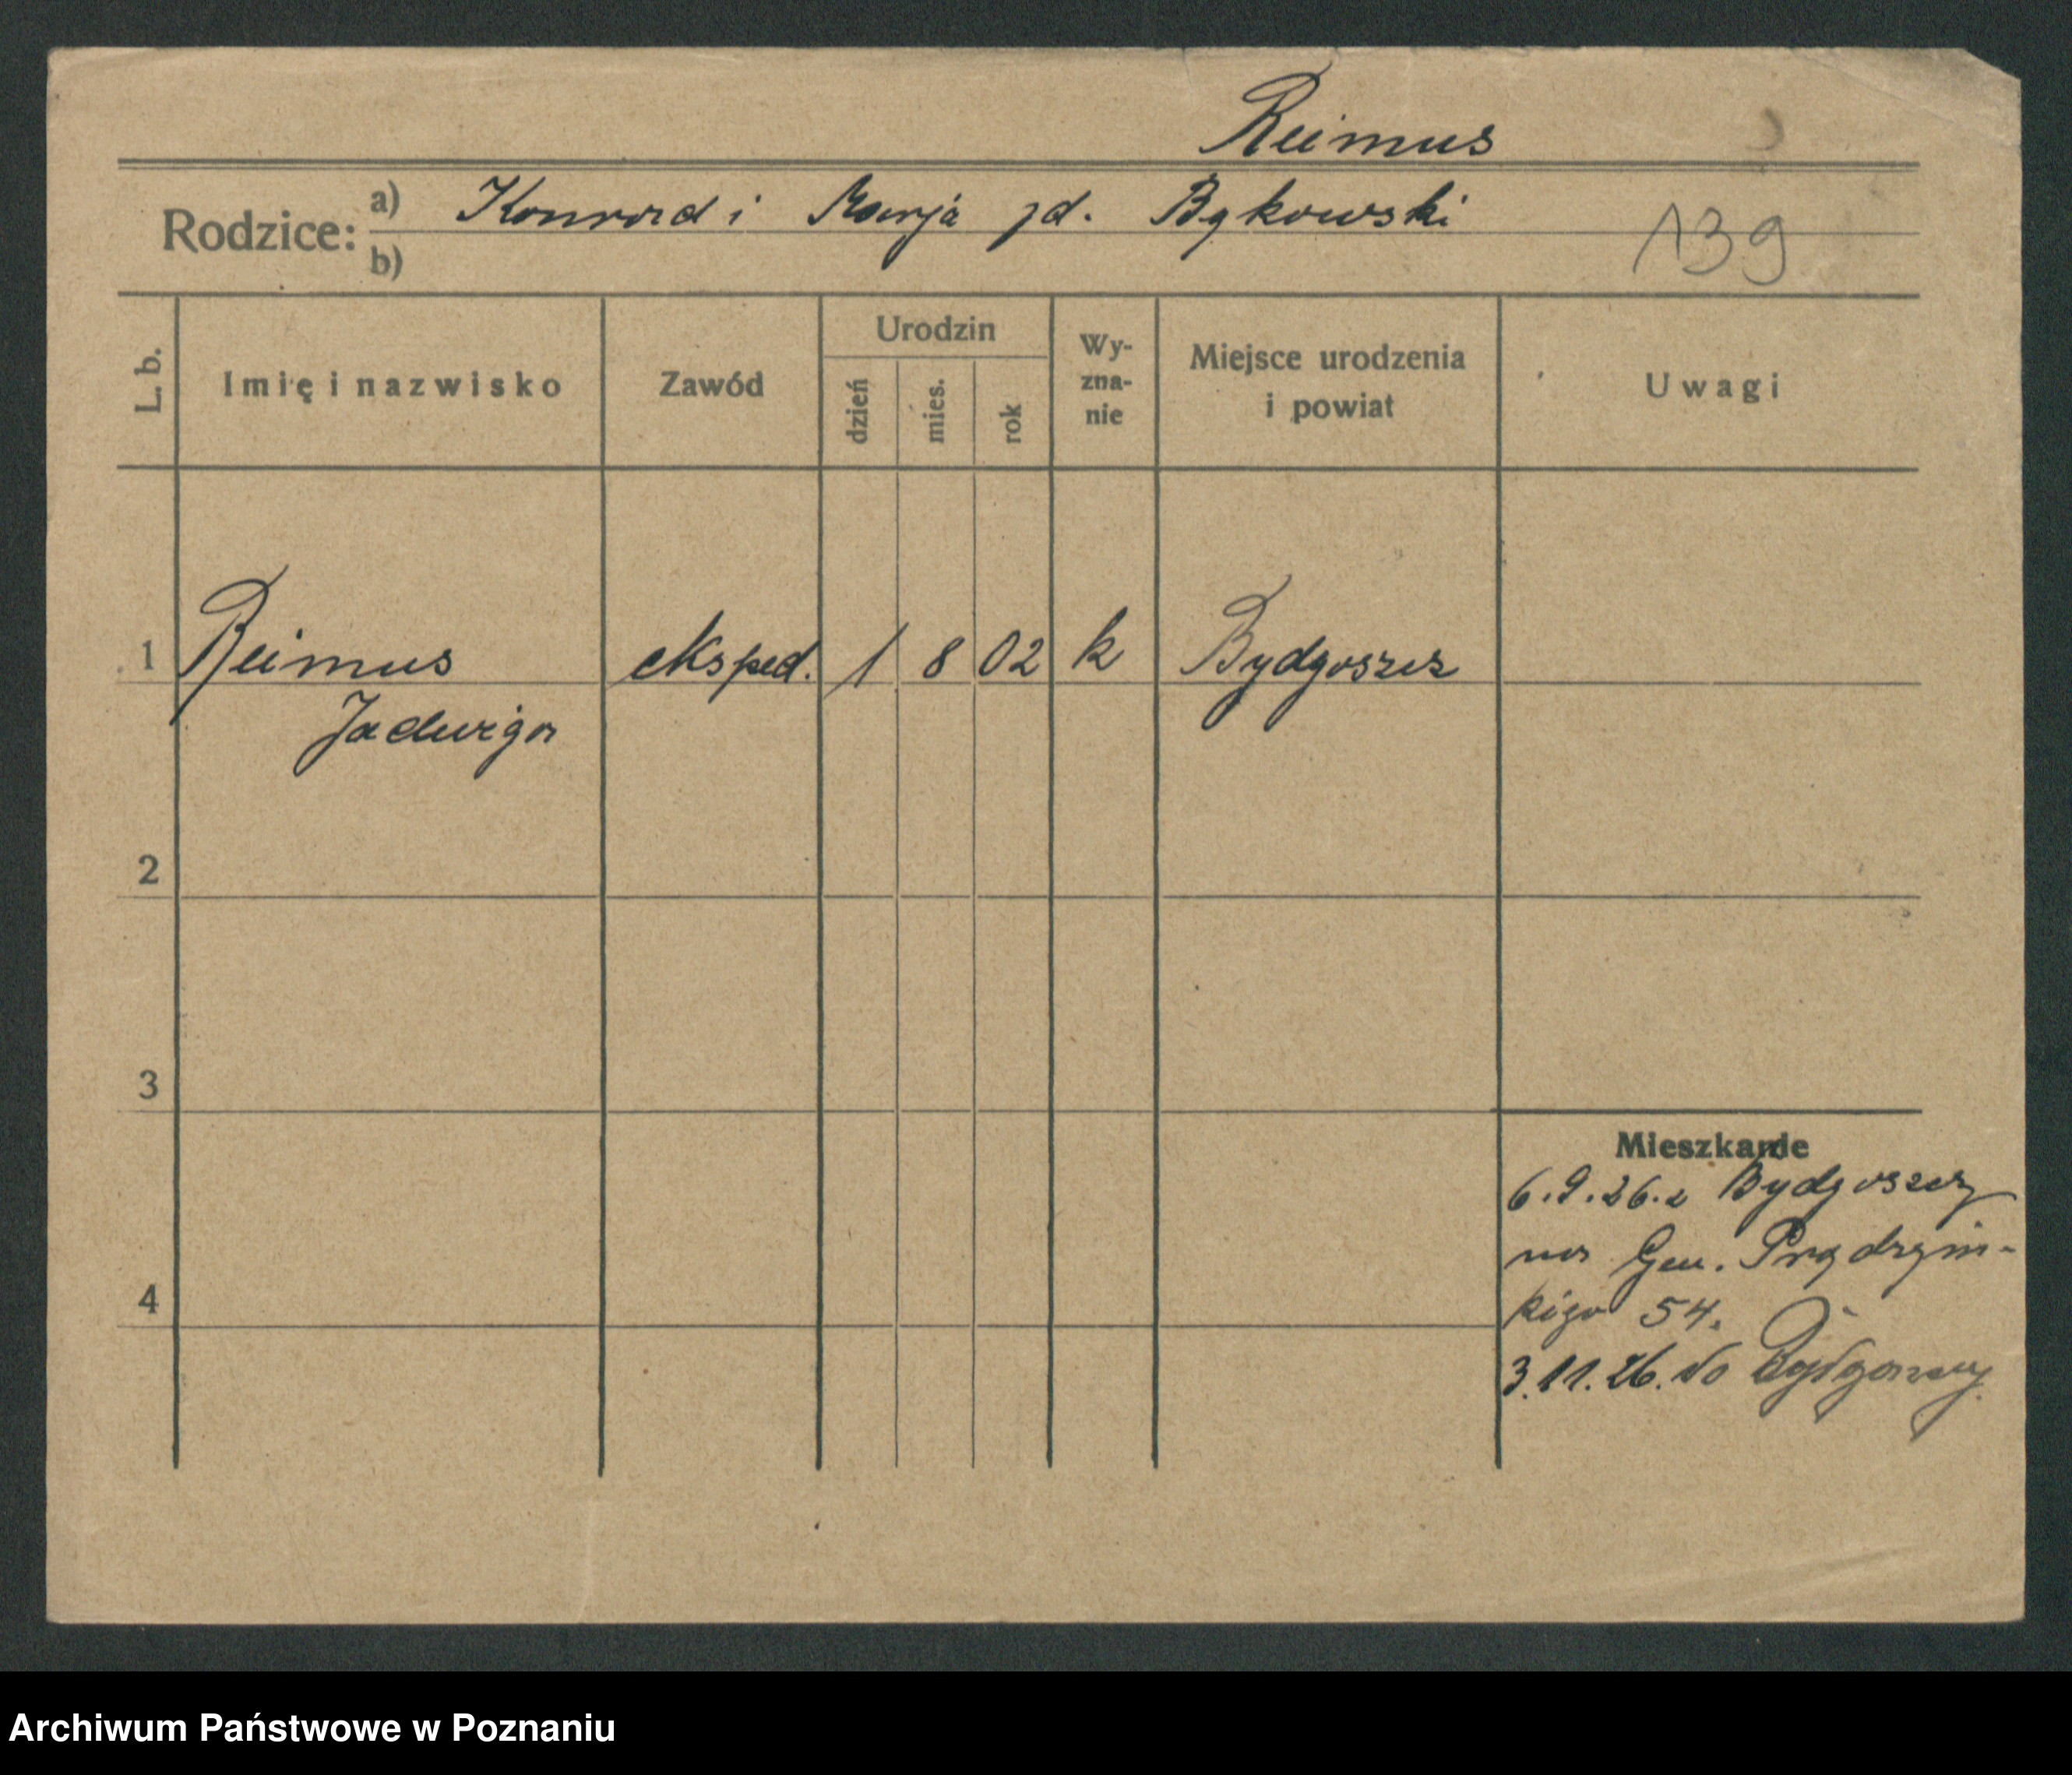 Reimus
Rodzice: a) Konrad i Marja zd. Bąkowski
b)
139
L. b.
Imię i nazwisko
Zawód
Urodzin
dzień
mies.
rok
Wy-
zna-
nie
Miejsce urodzenia
i powiat
Uwagi
1 Reimus eksped. 1 8 02 k Bydgoszcz
Jadwiga
2
3
4
Mieszkanie
6.9.26. z Bydgoszczy
na Gen. Prądzyń-
kiego 54.
3.11.26. do Bydgoszczy.
Archiwum Państwowe w Poznaniu